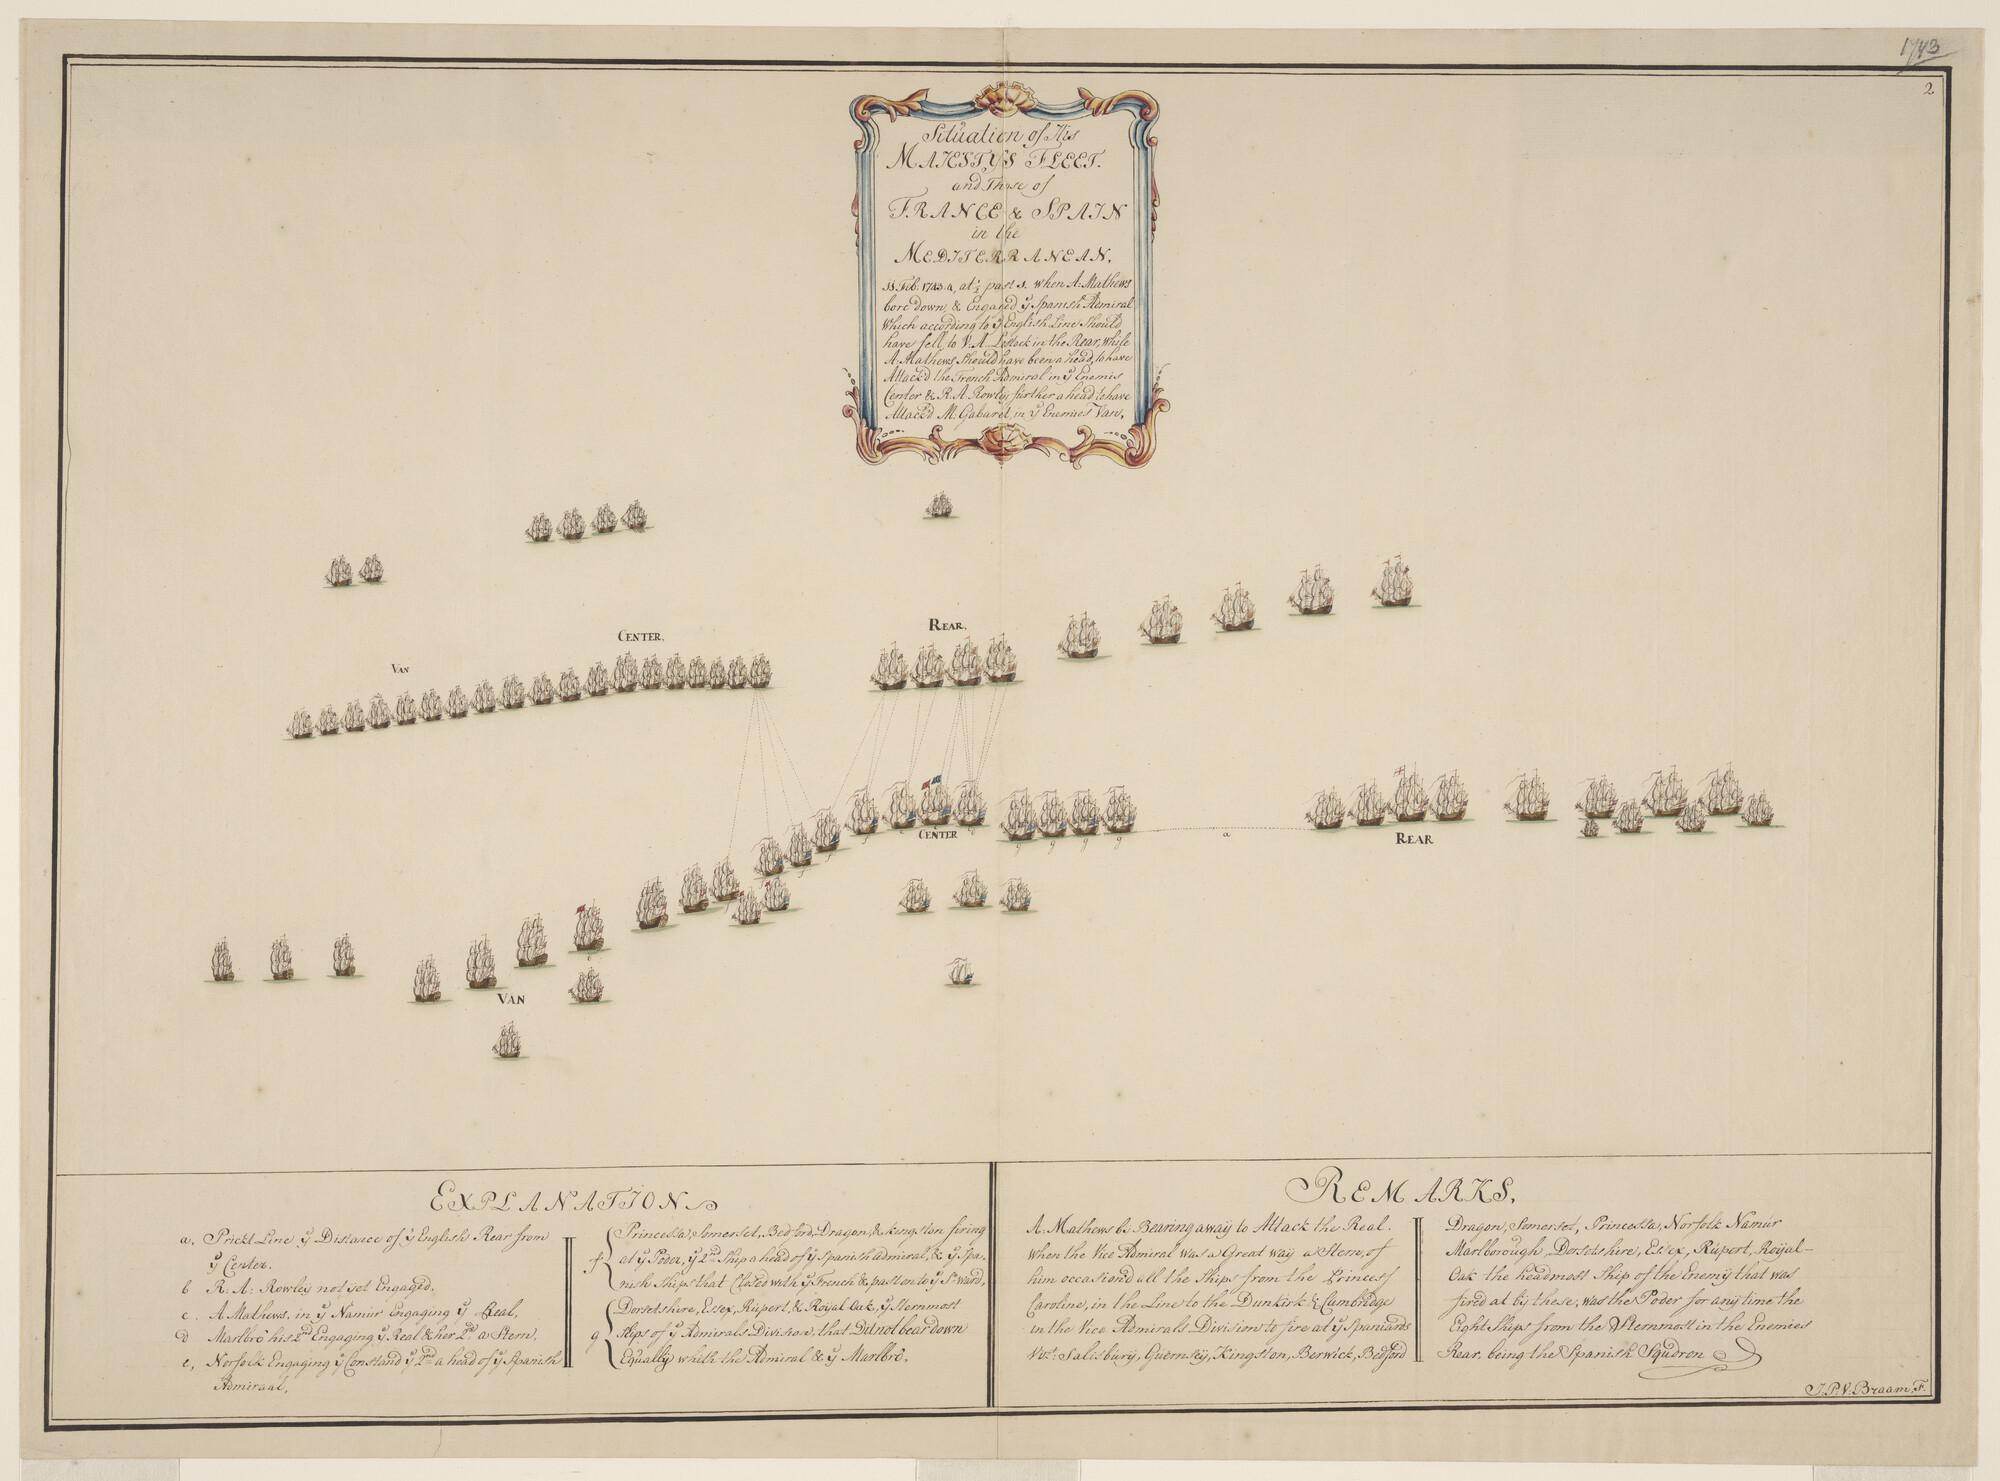 1743
2
Situation of His
MAJESTYS FLEET.
and Those of
FRANCE & SPAIN
in the
MEDITERRANEAN.
11 Feb. 1743.4, at ½ past 1. when A: Mathews
bore down, & Engaged ÿ Spanish Admiral
Which according to ÿ English Line Should
have fell, to V: A: Lestock in the Rear, while
A: Mathews Should have been a head, to have
Attack'd the French Admiral in ÿ Enemis
Center & R. A. Rowley further a head to have
Attack'd M: Gabaret, in ÿ Enemies Van,
CENTER,
REAR,
VAN
CENTER
a
REAR
VAN
EXPLANATION
a, Prickt Line ÿ Distance of ÿ English Rear from
ÿ Center.
b R. A: Rowley not yet Engaged.
c. A Mathews, in ÿ Namur Engaging ÿ Real,
d Marlbro his 2nd Engaging ÿ Real & her 2nd a Stern,
e, Norfolk Engaging ÿ Constand ÿ 2nd a head of ÿ Spanish
Admiraal,
f Princessa, Somerset, Bedford, Dragon, & kingston firing
at ÿ Poder, ÿ 2nd Ship a head of ÿ Spanish admiral, & ÿ Spa-
nish Ships that Closed with ÿ French & past on to ÿ Sºward,
g Dorsetshire, Essex, Rupert, & Royal Oak, ÿ Sternmost
Ships of ÿ Admirals Division, that Did not bear down
Equally whith the Admiral & ÿ Marlbro.
REMARKS,
A. Mathews by Bearing away to Attack the Real.
when the Vice Admiral was a Great way a Stern, of
him occasiond all the Ships from the Princess
Caroline, in the Line to the Dunkirk & Cambridge
in the Vice Admirals Division to fire at ÿ Spaniards
Vizt: Salisbury, Guernsey, Kingston, Berwick, Bedford
Dragon, Somerset, Princessa, Norfolk Namur
Marlborough, Dorsetshire, Essex, Rupert, Royal-
Oak the headmost Ship of the Enemy that was
fired at by these, was the Poder for any time the
Eight Ships from the Sternmost in the Enemies
Rear, being the Spanish Squdron
J. P. V. Braam, F.